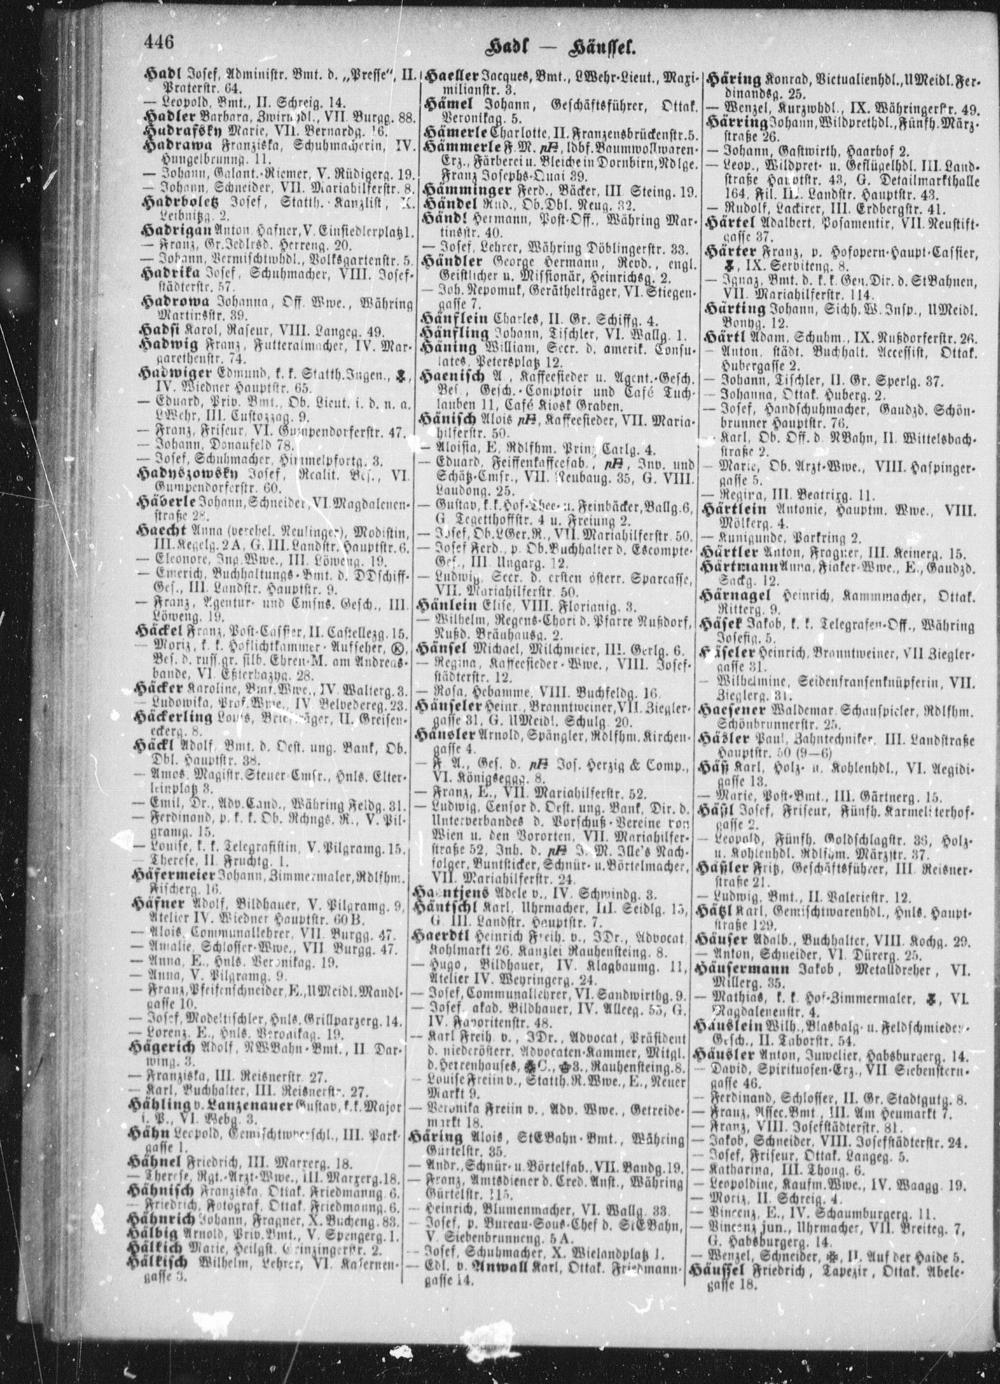 446
Hadl — Häussel.
Hadl Josef, Administr. Bmt. d. „Presse“, II.
Praterstr. 64.
— Leopold, Bmt., II. Schreig. 14.
Hadler Barbara, Zwirnhdl., VII. Burgg. 88.
Hudrafsky Marie, VII. Bernardg. 16.
Hadrawa Franziska, Schuhmacherin, IV.
Hungelbrunng. 11.
— Johann, Galant.-Riemer, V. Rüdigerg. 19.
— Johann, Schneider, VII. Mariahilferstr. 8.
Hadrboletz Josef, Statth.-Kanzlist, X.
Leibnitzg. 2.
Hadrigan Anton, Hafner, V. Einsiedlerplatz 1.
— Franz, Gr. Jedlrsd. Herreng. 20.
— Johann, Vermischtwhdl., Volksgartenstr. 5.
Hadrika Josef, Schuhmacher, VIII. Josef-
städterstr. 57.
Hadrowa Johanna, Off. Wwe., Währing
Martinsstr. 39.
Hadsi Karol, Raseur, VIII. Langeg. 49.
Hadwig Franz, Futteralmacher, IV. Mar-
garethenstr. 74.
Hadwiger Edmund, k. k. Statth. Ingen.,
IV. Wiedner Hauptstr. 65.
— Eduard, Priv. Bmt., Ob. Lieut. i. d. n. a.
LWehr, III. Custozzag. 9.
— Franz, Friseur, VI. Gumpendorferstr. 47.
— Johann, Donaufeld 78.
— Josef, Schuhmacher, Himmelpfortg. 3.
Hadyszowsky Josef, Realit. Bes., VI.
Gumpendorferstr. 60.
Häberle Johann, Schneider, VI. Magdalenen-
straße 28.
Haecht Anna (verehel. Neulinger), Modistin,
III. Kegelg. 2A, G. III. Landstr. Hauptstr. 6.
— Eleonore, Ing. Wwe., III. Löweng. 19.
— Emerich, Buchhaltungs-Bmt. d. DDschiff-
Ges., III. Landstr. Hauptstr. 9.
— Franz, Agentur- und Cmsns. Gesch., III.
Löweng. 19.
Häckel Franz, Post-Cassier, II. Castellezg. 15.
— Moriz, k. k. Hoflichtkammer-Aufseher, Ⓚ,
Bes. d. russ. gr. silb. Ehren-M. am Andreas-
bande, VI. Eßterhazyg. 28.
Häcker Karoline, Bmt. Wwe., IV. Walterg. 3.
— Ludowika, Prof. Wwe., IV. Belvedereg. 23.
Häckerling Louis, Briefträger, II. Greisen-
eckerg. 8.
Häckl Adolf, Bmt. d. Oest. ung. Bank, Ob.
Dbl. Hauptstr. 38.
— Amos, Magistr. Steuer-Cmsr., Hnls. Elter-
leinplatz 3.
— Emil, Dr., Adv. Cand., Währing Feldg. 31.
— Ferdinand, p. k. k. Ob. Rchngs. R., V. Pil-
gramg. 15.
— Louise, k. k. Telegrafistin, V. Pilgramg. 15.
— Therese, II. Fruchtg. 1.
Häfermeier Johann, Zimmermaler, Rdlfhm.
Fischerg. 16.
Häfner Adolf, Bildhauer, V. Pilgramg. 9,
Atelier IV. Wiedner Hauptstr. 60 B.
— Alois, Communallehrer, VII. Burgg. 47.
— Amalie, Schlosser-Wwe., VII. Burgg. 47.
— Anna, E., Hnls. Veronikag. 19.
— Anna, V. Pilgramg. 9.
— Franz, Pfeifenschneider, E., UMeidl. Mandl-
gasse 10.
— Josef, Modeltischler, Hnls. Grillparzerg. 14.
— Lorenz, E., Hnls. Veronikag. 19.
Hägerich Adolf, NWBahn-Bmt., II. Dar-
wing. 3.
— Franziska, III. Reisnerstr. 27.
— Karl, Buchhalter, III. Reisnerstr. 27.
Hähling v. Lanzenauer Gustav, k. k. Major
i. P., VI. Webg. 3.
Hähn Leopold, Gemischtwverschl., III. Park-
gasse 1.
Hähnel Friedrich, III. Marxerg. 18.
— Therese, Rgt.-Arzt-Wwe., III. Marxerg. 18.
Hähnisch Franziska, Ottak. Friedmanng. 6.
— Friedrich, Fotograf, Ottak. Friedmanng. 6.
Hähnrich Johann, Fragner, X. Bucheng. 83.
Hälbig Arnold, Priv. Bmt., V. Spengerg. 1.
Hälkich Marie, Heilgst. Grinzingerstr. 2.
Hälkisch Wilhelm, Lehrer, VI. Kasernen-
gasse 3.
Haeller Jacques, Bmt., LWehr-Lieut., Maxi-
milianstr. 3.
Hämel Johann, Geschäftsführer, Ottak.
Veronikag. 5.
Hämerle Charlotte, II. Franzensbrückenstr. 5.
Hämmerle F. M., ldbf. Baumwollwaren-
Erz., Färberei u. Bleiche in Dornbirn, Ndlge.
Franz Josephs-Quai 39.
Hämminger Ferd., Bäcker, III. Steing. 19.
Händel Rud., Ob. Dbl. Neug. 32.
Händl Hermann, Post-Off., Währing Mar-
tinsstr. 40.
— Josef, Lehrer, Währing Döblingerstr. 33.
Händler George Hermann, Revd., engl.
Geistlicher u. Missionär, Heinrichsg. 2.
— Joh. Nepomuk, Gerätheträger, VI. Stiegen-
gasse 7.
Hänflein Charles, II. Gr. Schiffg. 4.
Hänfling Johann, Tischler, VI. Wallg. 1.
Häning William, Secr. d. amerik. Consu-
lates, Petersplatz 12.
Haenisch A., Kaffeesieder u. Agent.-Gesch.
Bes., Gesch.-Comptoir und Café Tuch-
lauben 11, Café Kiosk Graben.
Hänisch Alois, Kaffeesieder, VII. Maria-
hilferstr. 50.
— Aloisia, E., Rdlfhm. Prinz Carlg. 4.
— Eduard, Feiffenkaffeefab., Inv. und
Schätz-Cmsr., VII. Neubaug. 35, G. VIII.
Laudong. 25.
— Gustav, k. k. Hof-Thee- u. Feinbäcker, Ballg. 6,
G. Tegetthoffstr. 4 u. Freiung 2.
— Josef, Ob. LGer. R., VII. Mariahilferstr. 50.
— Josef Ferd., p. Ob. Buchhalter d. Escompte-
Ges., III. Ungarg. 12.
— Ludwig, Secr. d. ersten österr. Sparcasse,
VII. Mariahilferstr. 50.
Hänlein Elise, VIII. Florianig. 3.
— Wilhelm, Regens-Chori d. Pfarre Nußdorf,
Nußd. Bräuhausg. 2.
Hänsel Michael, Milchmeier, III. Gerlg. 6.
— Regina, Kaffeesieder-Wwe., VIII. Josef-
städterstr. 12.
— Rosa, Hebamme, VIII. Buchfeldg. 16.
Hänseler Heinr., Branntweiner, VII. Ziegler-
gasse 31, G. UMeidl. Schulg. 20.
Hänsler Arnold, Spängler, Rdlfhm. Kirchen-
gasse 4.
— F. A., Ges. d. Jos. Herzig & Comp.,
VI. Königsegg. 8.
— Franz, E., VII. Mariahilferstr. 52.
— Ludwig, Censor d. Oest. ung. Bank, Dir. d.
Unterverbandes d. Vorschuß-Vereine von
Wien u. den Vororten, VII. Mariahilfer-
straße 52, Inh. d. J. M. Ille's Nach-
folger, Buntsticker, Schnür- u. Börtelmacher,
VII. Mariahilferstr. 24.
Haentjens Adele v., IV. Schwindg. 3.
Häntschl Karl, Uhrmacher, III. Seidlg. 15,
G. III. Landstr. Hauptstr. 7.
Haerdtl Heinrich Freih. v., JDr., Advocat,
Kohlmarkt 26, Kanzlei Rauhensteing. 8.
— Hugo, Bildhauer, IV. Klagbaumg. 11,
Atelier IV. Weyringerg. 24.
— Josef, Communallehrer, VI. Sandwirthg. 9.
— Josef, akad. Bildhauer, IV. Alleeg. 53, G.
IV. Favoritenstr. 48.
— Karl Freih. v., JDr., Advocat, Präsident
d. niederösterr. Advocaten-Kammer, Mitgl.
d. Herrenhauses, Rauhensteing. 8.
— Louise Freiin v., Statth. R. Wwe., E., Neuer
Markt 9.
— Veronika Freiin v., Adv. Wwe., Getreide-
markt 18.
Häring Alois, StEBahn-Bmt., Währing
Gürtelstr. 35.
— Andr., Schnür- u. Börtelfab., VII. Bandg. 19.
— Franz, Amtsdiener d. Cred. Anst., Währing
Gürtelstr. 115.
— Heinrich, Blumenmacher, VI. Wallg. 33.
— Josef, p. Bureau-Sous-Chef d. StEBahn,
V. Siebenbrunneng. 5 A.
— Josef, Schuhmacher, X. Wielandplatz 1.
— Edl. v. Anwall Karl, Ottak. Friedmann-
gasse 14.
Häring Konrad, Victualienhdl., UMeidl. Fer-
dinandsg. 25.
— Wenzel, Kurzwhdl., IX. Währingerstr. 49.
Härring Johann, Wildprethdl., Fünfh. März-
straße 26.
— Johann, Gastwirth, Haarhof 2.
— Leop., Wildpret- u. Geflügelhdl. III. Land-
straße Hauptstr. 43, G. Detailmarkthalle
164, Fil. III. Landstr. Hauptstr. 43.
— Rudolf, Lackirer, III. Erdbergstr. 41.
Härtel Adalbert, Posamentir, VII. Neustift-
gasse 37.
Härter Franz, p. Hofopern-Haupt-Cassier,
IX. Serviteng. 8.
— Ignaz, Bmt. d. k. k. Gen. Dir. d. StBahnen,
VII. Mariahilferstr. 114.
Härting Johann, Sichh. W. Insp., UMeidl.
Bonyg. 12.
Härtl Adam, Schuhm., IX. Nußdorferstr. 26.
— Anton, städt. Buchhalt. Accessist, Ottak.
Hubergasse 2.
— Johann, Tischler, II. Gr. Sperlg. 37.
— Johanna, Ottak. Huberg. 2.
— Josef, Handschuhmacher, Gaudzd. Schön-
brunner Hauptstr. 76.
— Karl, Ob. Off. d. NBahn, II. Wittelsbach-
straße 2.
— Marie, Ob. Arzt-Wwe., VIII. Haspinger-
gasse 5.
— Regina, III. Beatrixg. 11.
Härtlein Antonie, Hauptm. Wwe., VIII.
Mölkerg. 4.
— Kunigunde, Parkring 2.
Härtler Anton, Fragner, III. Keinerg. 15.
Härtmann Anna, Fiaker-Wwe., E., Gaudzd.
Sackg. 12.
Härnagel Heinrich, Kammmacher, Ottak.
Ritterg. 9.
Häsek Jakob, k. k. Telegrafen-Off., Währing
Josefig. 5.
Häseler Heinrich, Branntweiner, VII. Ziegler-
gasse 31.
— Wilhelmine, Seidenfransenknüpferin, VII.
Zieglerg. 31.
Haesener Waldemar, Schauspieler, Rdlfhm.
Schönbrunnerstr. 25.
Häsler Paul, Zahntechniker, III. Landstraße
Hauptstr. 50 (9—6)
Häß Karl, Holz- u. Kohlenhdl., VI. Aegidi-
gasse 13.
— Marie, Post-Bmt., III. Gärtnerg. 15.
Häßl Josef, Friseur, Fünfh. Karmeliterhof-
gasse 2.
— Leopold, Fünfh. Goldschlagstr. 36, Holz-
u. Kohlenhdl. Rdlfhm. Märzstr. 37.
Häßler Fritz, Geschäftsführer, III. Reisner-
straße 21.
— Ludwig, Bmt., II. Valeriestr. 12.
Hätzl Karl, Gemischtwarenhdl., Hnls. Haupt-
straße 129.
Häuser Adalb., Buchhalter, VIII. Kochg. 29.
— Anton, Schneider, VI. Dürerg. 25.
Häusermann Jakob, Metalldreher, VI.
Millerg. 35.
— Mathias, k. k. Hof-Zimmermaler, VI.
Magdalenenstr. 4.
Häuslein Wilh., Blasbalg- u. Feldschmiede-
Gesch., II. Taborstr. 54.
Häusler Anton, Juwelier, Habsburgerg. 14.
— David, Spirituosen-Erz., VII. Siebenstern-
gasse 46.
— Ferdinand, Schlosser, II. Gr. Stadtgutg. 8.
— Franz, Assec. Bmt., III. Am Heumarkt 7.
— Franz, VIII. Josefstädterstr. 81.
— Jakob, Schneider, VIII. Josefstädterstr. 24.
— Josef, Friseur, Ottak. Langeg. 5.
— Katharina, III. Thong. 6.
— Leopoldine, Kaufm. Wwe., IV. Waagg. 19.
— Moriz, II. Schreig. 4.
— Vincenz, E., IV. Schaumburgerg. 11.
— Vincenz jun., Uhrmacher, VII. Breiteg. 7,
G. Habsburgerg. 14.
— Wenzel, Schneider, IV. Auf der Haide 5.
Häussel Friedrich, Tapezir, Ottak. Abele-
gasse 18.